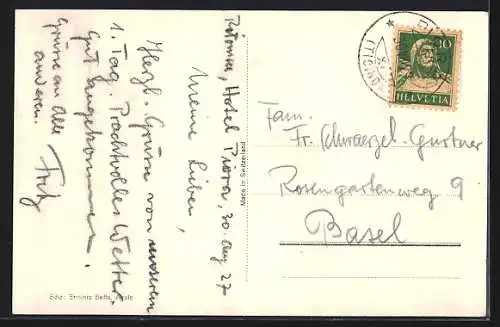 Ritomsee, Hotel Piora, 30. Aug 27
Meine Lieben,
Herzl. Grüsse von unserem
1. Tag. Prachtvolles Wetter.
Gut angekommen.
Grüsse an alle
anderen. Fritz
Made in Switzerland
Ediz: Erminio Betta, Airolo
(TICINO)
10
HELVETIA
Fam.
Fr. Schwarzel-Gurtner
Rosengartenweg 9
Basel